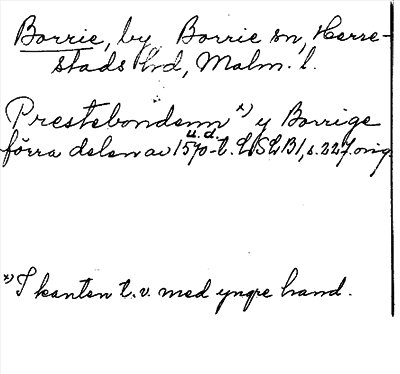 Borrie, by Borrie sn, Herre-
stads hd, Malm. l.
Prestebondenn x) y Borrige
u.d.
förra delen av 1570-t. LSLB1, s. 227. orig.
x) I kanten t.v. med yngre hand.